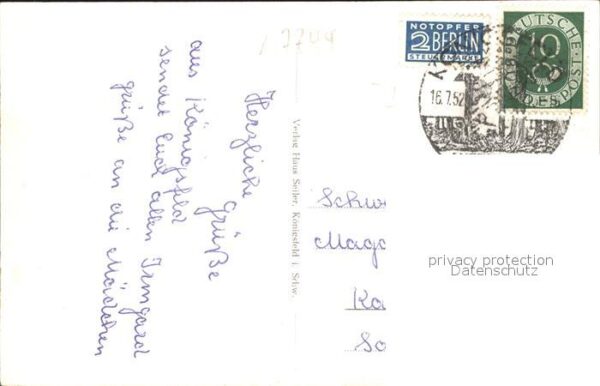 NOTOPFER
2 BERLIN
STEUERMARKE
DEUTSCHE
10
BUNDESPOST
16.7.52
Herzliche Grüße
aus Königsfeld
sendet Euch allen Irmgard
Grüße an die Mädchen
Verlag Haus Seiler, Königsfeld i. Schw.
Schw
Magd
Ka
So
privacy protection
Datenschutz